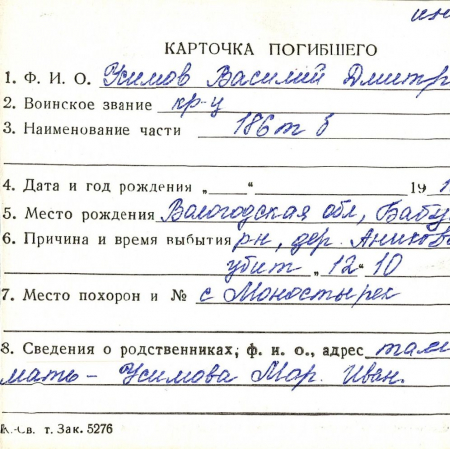 ин
КАРТОЧКА ПОГИБШЕГО
1. Ф. И. О. Усимов Василий Дмитр
2. Воинское звание кр-ц
3. Наименование части 186 т б
4. Дата и год рождения „ “ 19
5. Место рождения Вологодская обл, Бабу
6. Причина и время выбытия рн, дер. Аников
убит „12“ 10
7. Место похорон и № с Моностырек
8. Сведения о родственниках, ф. и. о., адрес там
мать - Усимова Мар. Иван.
К.-Св. т. Зак. 5276